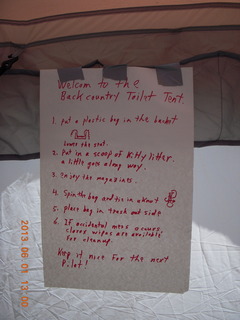 Welcome to the
Backcountry Toilet Tent.
1. put a plastic bag in the basket
lower the seat.
2. Put in a scoop of Kitty litter.
a little goes a long way.
3. enjoy the magazines.
4. Spin the bag and tie in a Knot
5. place bag in trash out side
6. If accidental mess occures,
clorox wipes are available
for cleanup.
Keep it nice for the next
Pilot!
2013 06 01 13:00